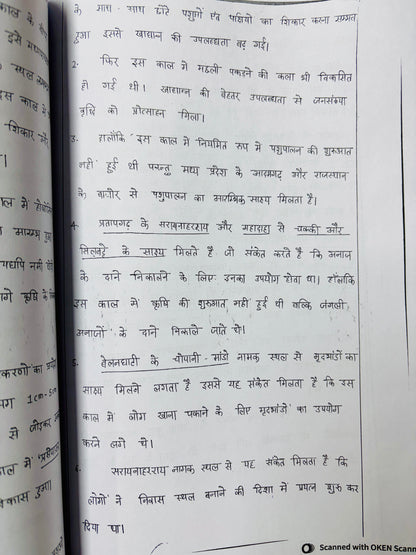 के साथ-साथ छोटे पशुओं एवं पक्षियों का शिकार करना सम्भव
हुआ इससे खाद्यान्न की उपलब्धता बढ़ गई।
2. फिर इस काल में मछली पकड़ने की कला भी विकसित
हो गई थी। खाद्यान्न की बेहतर उपलब्धता से जनसंख्या
वृद्धि को प्रोत्साहन मिला।
3. हालाँकि इस काल में नियमित रूप में पशुपालन की शुरुआत
नहीं हुई थी परन्तु मध्य प्रदेश के आदमगढ़ और राजस्थान
के बागोर से पशुपालन का आरम्भिक साक्ष्य मिलता है।
4. प्रतापगढ़ के सरायनाहरराय और महादहा से चक्की और
सिलबट्टे के साक्ष्य मिलते हैं जो संकेत करते हैं कि अनाज
के दाने निकालने के लिए उनका उपयोग होता था। हाँलाकि
इस काल में कृषि की शुरुआत नहीं हुई थी बल्कि जंगली
अनाजों के दाने निकाले जाते थे।
5. बेलनघाटी के चोपानी-मांडो नामक स्थल से मृदभांडों का
साक्ष्य मिलने लगता है इससे यह संकेत मिलता है कि इस
काल में लोग खाना पकाने के लिए मृदभांडों का उपयोग
करने लगे थे।
सरायनाहरराय नामक स्थल से यह संकेत मिलता है कि
लोगों ने निवास स्थल बनाने की दिशा में प्रयत्न शुरु कर
दिया था।
काल में
इसे मध्य
स्थल
इस काल
शिकार
ल में
प्रारम्भ
यद्यपि नर्मी
गे कृषि के
करणों का प्रयोग
1cm-5cm
से जोड़कर
ल में
विकास हुआ।
Scanned with OKEN Scanner